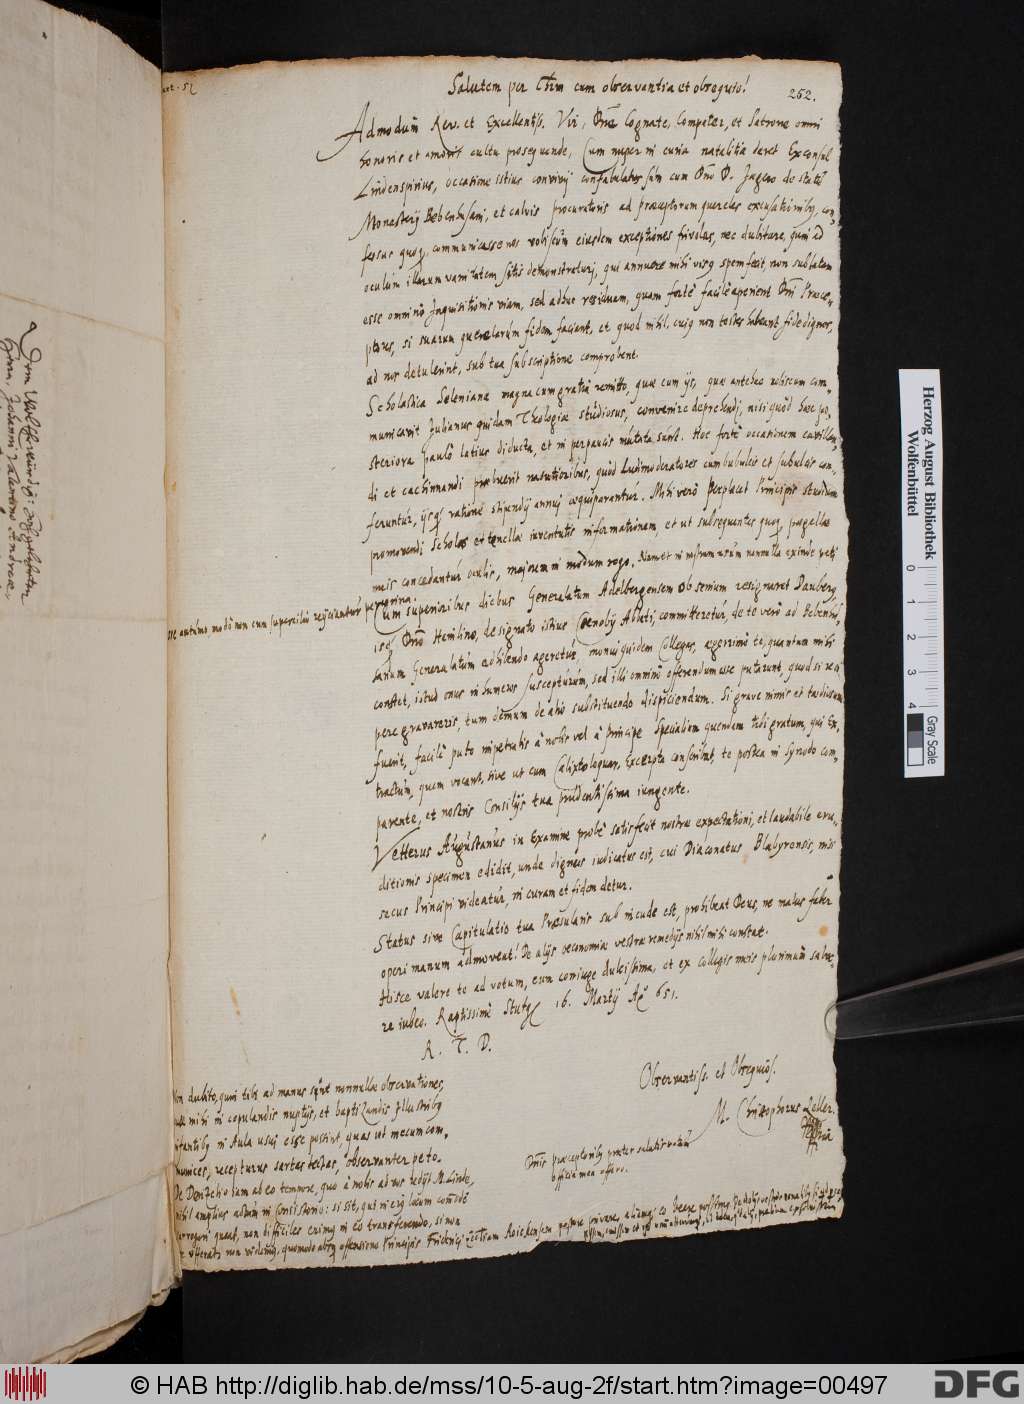 Salutem per Chrm cum observantia et obsequio!
252.
Admodum Rev. et Excellentiss. Vir, Dne Cognate, Compater, et Patrone omni
honoris et amoris cultu prosequende, Cum nuper in curia natalitia daret Exconsul
Lindenspirius, occasione istius convivij confabulatus sum cum Dno D. Jagero de statu
Monasterij Bebenhusani, et calvis procuratoris ad praeceptorum querelas excusationibus, con-
fessus quoque communicasse nos vobiscum eiusdem exceptiones frivolas, nec dubitare, quin ad
oculum illarum vanitatem sitis demonstraturi, qui annuere mihi visus spem fecit, non sublatam
esse omnino Inquisitionis viam, sed adhuc residuam, quam forte facile aperient Dni Praece-
ptores, si suarum querelarum fidem faciant, et quod nihil, cuius non testes habeant fide dignos,
ad nos detulerint, sub tua subscriptione comprobent.
Scholastica Seleniana magna cum gratia remitto, quae cum ijs, quae antehac vobiscum com-
municavit Julianus quidam Theologiae studiosus, convenire deprehendi, nisi quod haec po-
steriora paulo latius diducta, et in perpaucis mutata sunt. Hoc forte occasionem cavillan-
di et cachinnandi praebuerit nasutioribus, quod Ludimoderatores cum bubulcis et subulcis con-
feruntur, ijsque ratione stipendij annui aequiparantur. Mihi vero perplacet Principis studium
promovendi scholas et tenellae iuventutis informationem, et ut subsequentes quoque pagellae
meis concedantur oculis, maiorum in modum rogo. Nam et in nostrum usum nonnulla exinde peti
posse autumo modo non cum supercilio reijciantur peregrina.
Cum superioribus diebus Generalatum Adelbergensem ob senium resignaret Dauber,
isque Dno Hemlino, designato istius Coenobij Abbati, committeretur, de te vero ad Bebenhu-
sanum Generalatum adhibendo ageretur, monui quidem Collegas, aegerrime te, quantum mihi
constet, istud onus in humeros suscepturum, sed illi omnino offerendum esse putarunt, quod si reci-
pere gravareris, tum demum de alio substituendo dispiciendum. Si grave nimis et taediosum
fuerit, facile puto impetrabis a nobis vel a Principe Specialem quendam tibi gratum, qui Ex-
tractum, quem vocant, sive ut cum Calixto loquar, Excerpta conscribat, te postea in Synodo com-
parente, et nostris Consilijs tua prudentissima iungente.
Vetterus Augustanus in Examine probe satisfecit nostrae expectationi, et laudabile eru-
ditionis specimen edidit, unde dignus iudicatus est, cui Diaconatus Blabyrensis, nisi
secus Principi videatur, in curam et fidem detur.
Status sive Capitulatio tua Praesularis sub incude est, prohibeat Deus, ne malus faber
operi manum admoveat! De alijs oeconomiae vestrae remedijs nihil mihi constat.
Hisce valere te ad votum, cum coniuge dulcissima, et ex collegis meis plurimum salve-
re iubeo. Raptissime Stutg. 16. Martij Ao 651.
R. T. D.
Observantiss. et Obsequios.
M. Christophorus Zeller.
Dnis praeceptoribus praeter salutis votum
officia mea offero.
Non dubito, quin tibi ad manus sint nonnullae observationes,
quae mihi in copulandis nuptijs, et baptizandis Illustribus
infantibus in Aula usui esse possint, quas ut mecum com-
munices, recepturus sartas tectas, observanter peto.
nihil amplius actum in Consistorio: si sit, qui in eius locum commode
surrogari queat, non difficiles erimus in eo transferendo, si non
Herzog August Bibliothek
Wolfenbüttel
0 1 2 3 4
Gray Scale
© HAB http://diglib.hab.de/mss/10-5-aug-2f/start.htm?image=00497
DFG